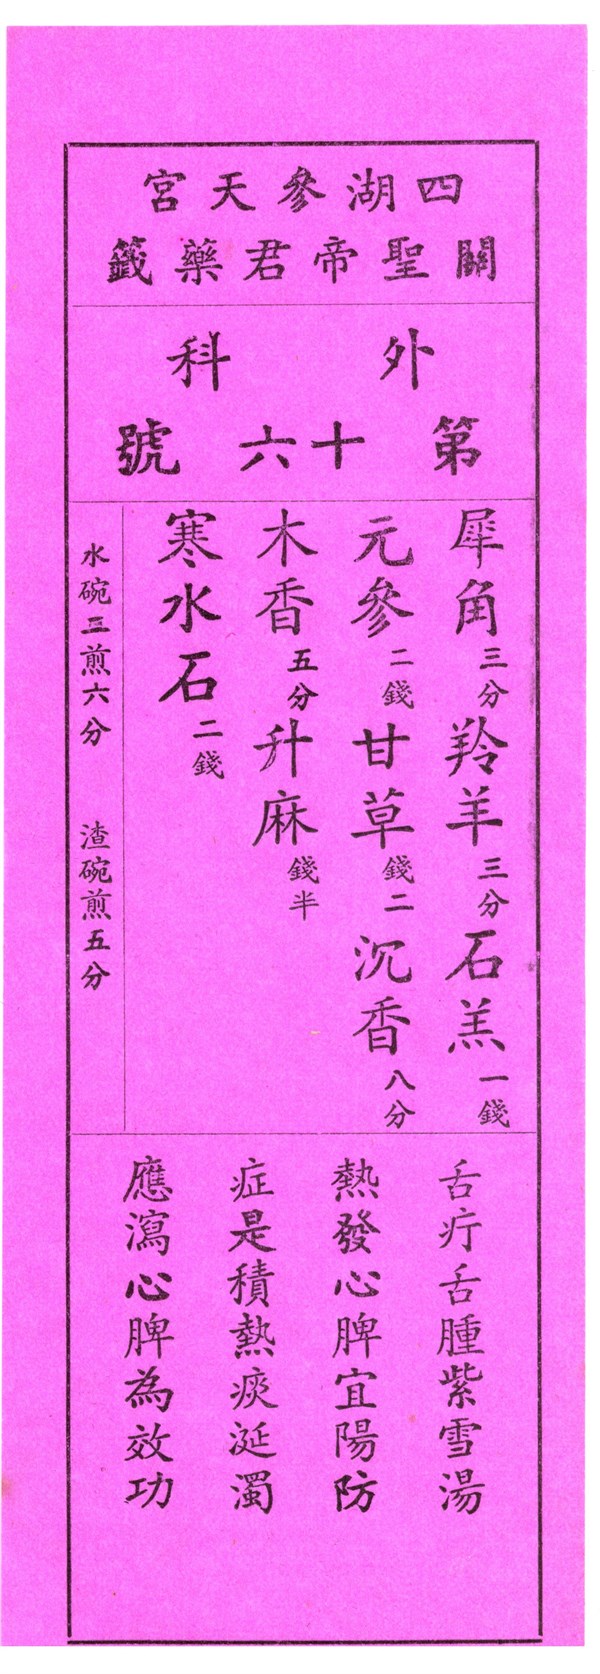 四湖參天宮
關聖帝君藥籤
外科
第十六號
犀角三分羚羊三分石羔一錢
元參二錢甘草錢二沉香八分
木香五分升麻錢半
寒水石二錢
水碗三煎六分 渣碗煎五分
舌疔舌腫紫雪湯
熱發心脾宜陽防
症是積熱痰涎濁
應瀉心脾為效功